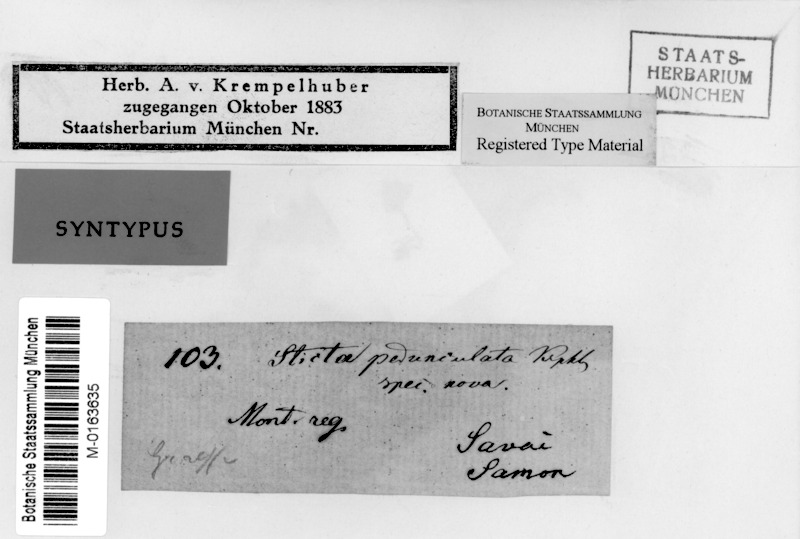 STAATS-
HERBARIUM
MÜNCHEN
Herb. A. v. Krempelhuber
zugegangen Oktober 1883
Staatsherbarium München Nr.
BOTANISCHE STAATSSAMMLUNG
MÜNCHEN
Registered Type Material
SYNTYPUS
Botanische Staatssammlung München
M-0163635
103. Sticta pedunculata Kphb
spec. nova.
Mont. reg.
Savai
Samoa